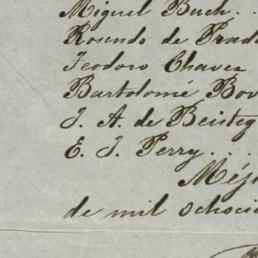 Miguel Buch . .
Rosendo de Prad
Teodoro Chavez
Bartolomé Bov
J. A. de Beisteg
E. J. Perry . . .
Méj
de mil ochoci